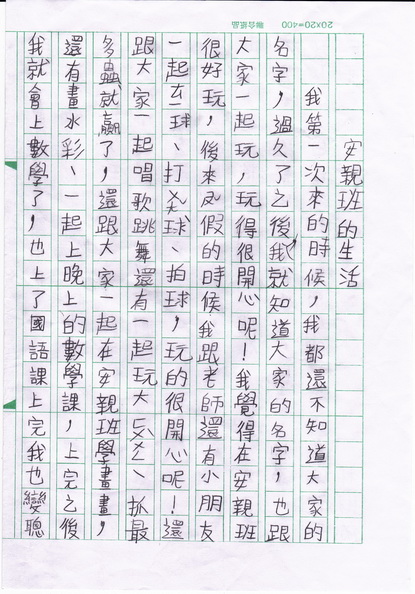 20×20=400
安親班的生活
我第一次來的時候，我都還不知道大家的
名字，過久了之後我就知道大家的名字，也跟
大家一起玩，玩得很開心呢！我覺得在安親班
很好玩，後來假的時候我跟老師還有小朋友
一起球、打球、拍球，玩的很開心呢！還
跟大家一起唱歌跳舞還有一起玩大、抓最
多蟲就贏了，還跟大家一起在安親班學畫畫，
還有畫水彩、一起上晚上的數學課，上完之後
我就會上數學了，也上了國語課上完我也變聰